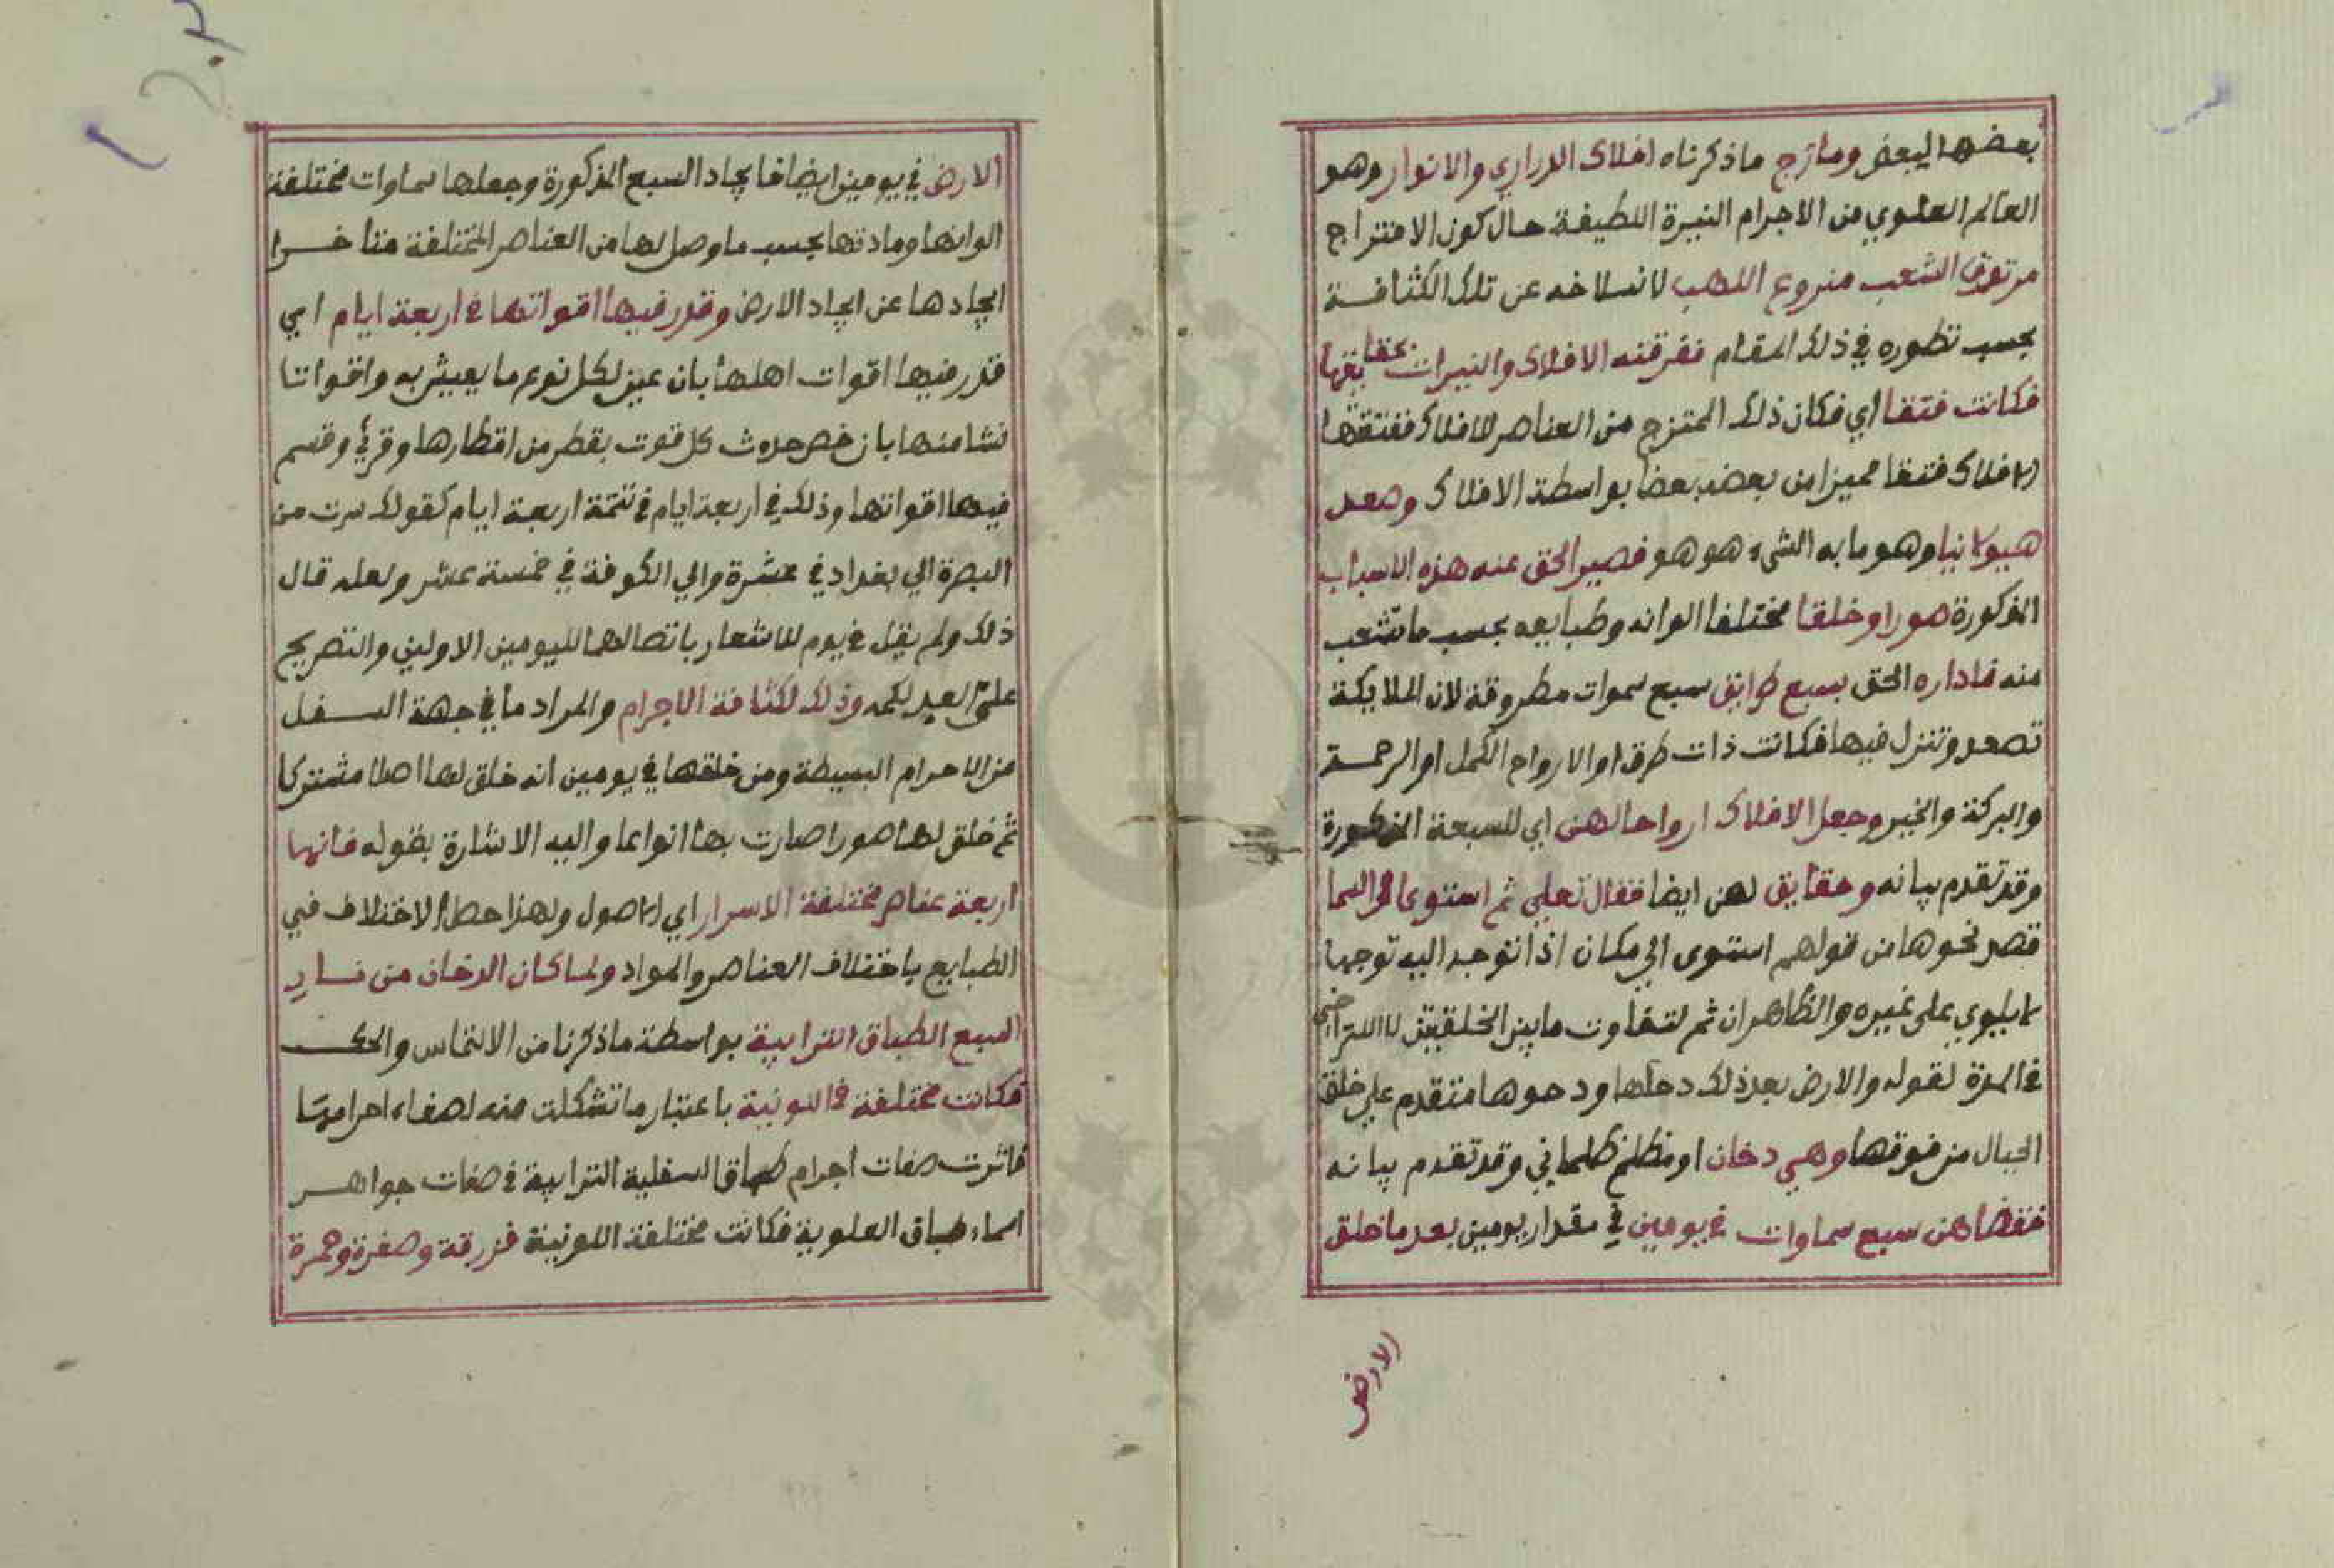 بعضها لبعض ومازج ماذكرناه افلاك الدراري والانوار وهو
العالم العلوي من الاجرام النيرة اللطيفة حال كون الامتزاج
مرتوق الشعب منزوع اللهب لانسلاخه عن تلك الكثافة
بحسب تطوره في ذلك المقام ففرقته الافلاك والنيرات بحقايقها
فكانت فتقا اي فكان ذلك الممتزج من العناصر للافلاك ففتقتها
الافلاك فتقا مميزا من بعضه بعضا بواسطة الافلاك وصعد
هيولانيا وهو ما به الشيء هو هو فصير الحق عنه هذه الاسباب
المذكورة صورا وخلقا مختلفا الوانه وطبايعه بحسب ما تشعب
منه فاداره الحق سبع طرايق سبع سموات مطروقة لان الملايكة
تصعد وتنزل فيها فكانت ذات طرق او الارواح الكمل او الرحمة
والبركة والخير وجعل الافلاك ارواحا لهن اي للسبعة المذكورة
وقد تقدم بيانه وحقايق لهن ايضا فقال تعلي ثم استوى الى السما
قصد نحوها من قولهم استوى الي مكان اذا توجه اليه توجها
لا يلوي على غيره والظاهر ان ثم لتفاوت ما بين الخلقيتين لا للتراخي
في المدة لقوله والارض بعد ذلك دحاها ودحوها متقدم علي خلق
الجبال من فوقها وهي دخان او مظلم ظلماني وقد تقدم بيانه
فقضاهن سبع سماوات في يومين في مقدار يومين بعد ما خلق
الارض
الارض في يومين ايضا فايجاد السبع المذكورة وجعلها سماوات مختلفة
الوانها ومادتها بحسب ما وصل لها من العناصر المختلفة متاخرا
ايجادها عن ايجاد الارض وقدر فيها اقواتها في اربعة ايام اي
قدر فيها اقوات اهلها بان عين لكل نوع ما يعيش به واقواتا
تنشا منها بان خص حدوث كل قوت بقطر من اقطارها وقرئ وقسم
فيها اقواتها وذلك في اربعة ايام في تتمة اربعة ايام كقولك سرت من
البصرة الي بغداد في عشرة والي الكوفة في خمسة عشر ولعله قال
ذلك ولم يقل في يوم للاشعار باتصالهما لليومين الاولين والتصريح
على وذلك لكثافة الاجرام والمراد ما في جهة السفل
من الاجرام البسيطة ومن خلقها في يومين انه خلق لها اصلا مشتركا
ثم خلق لها صورا صارت بها انواعا واليه الاشارة بقوله فانها
اربعة عناصر مختلفة الاسرار اي الاصول ولهذا حصل الاختلاف في
الطبايع باختلاف العناصر والمواد ولما كان الدخان من نار
السبع الطباق الترابية بواسطة ماذكرنا من الالتماس والحك
فكانت مختلفة في اللونية باعتبار ما تشكلت منه لصفاء اجرامها
فاثرت صفات اجرام طباق السفلية الترابية في صفات جواهر
اسماء طباق العلوية فكانت مختلفة اللونية فزرقة وصفرة وحمرة